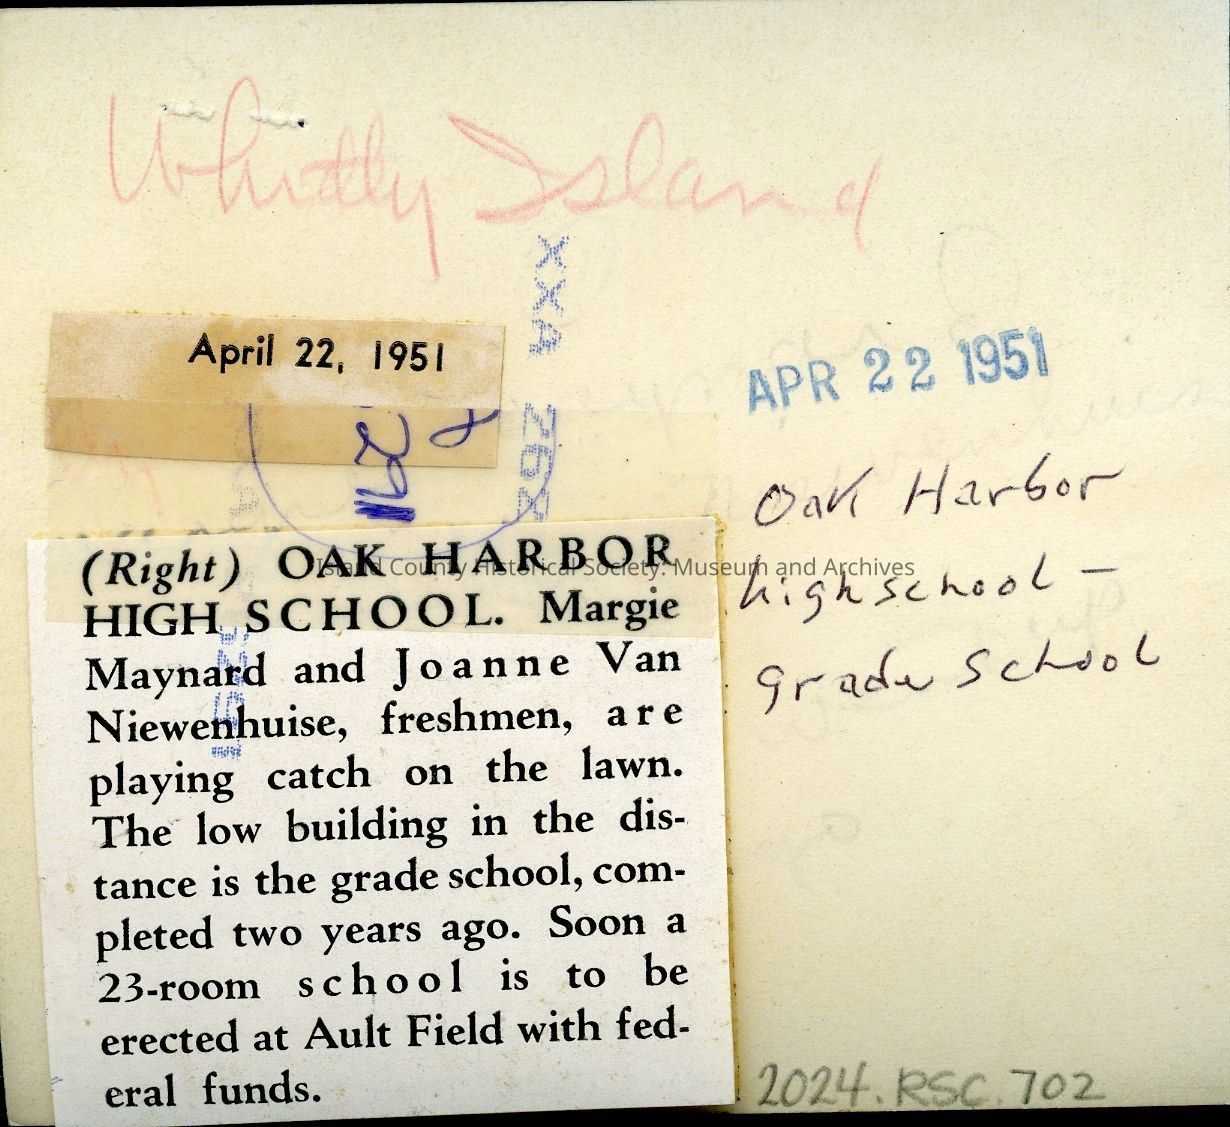 Whidby Island
XXA 262
April 22, 1951
APR 22 1951
Oak Harbor
highschool -
grade school
(Right) OAK HARBOR
HIGH SCHOOL. Margie
Maynard and Joanne Van
Niewenhuise, freshmen, are
playing catch on the lawn.
The low building in the dis-
tance is the grade school, com-
pleted two years ago. Soon a
23-room school is to be
erected at Ault Field with fed-
eral funds.
Island County Historical Society: Museum and Archives
2024.RSC.702